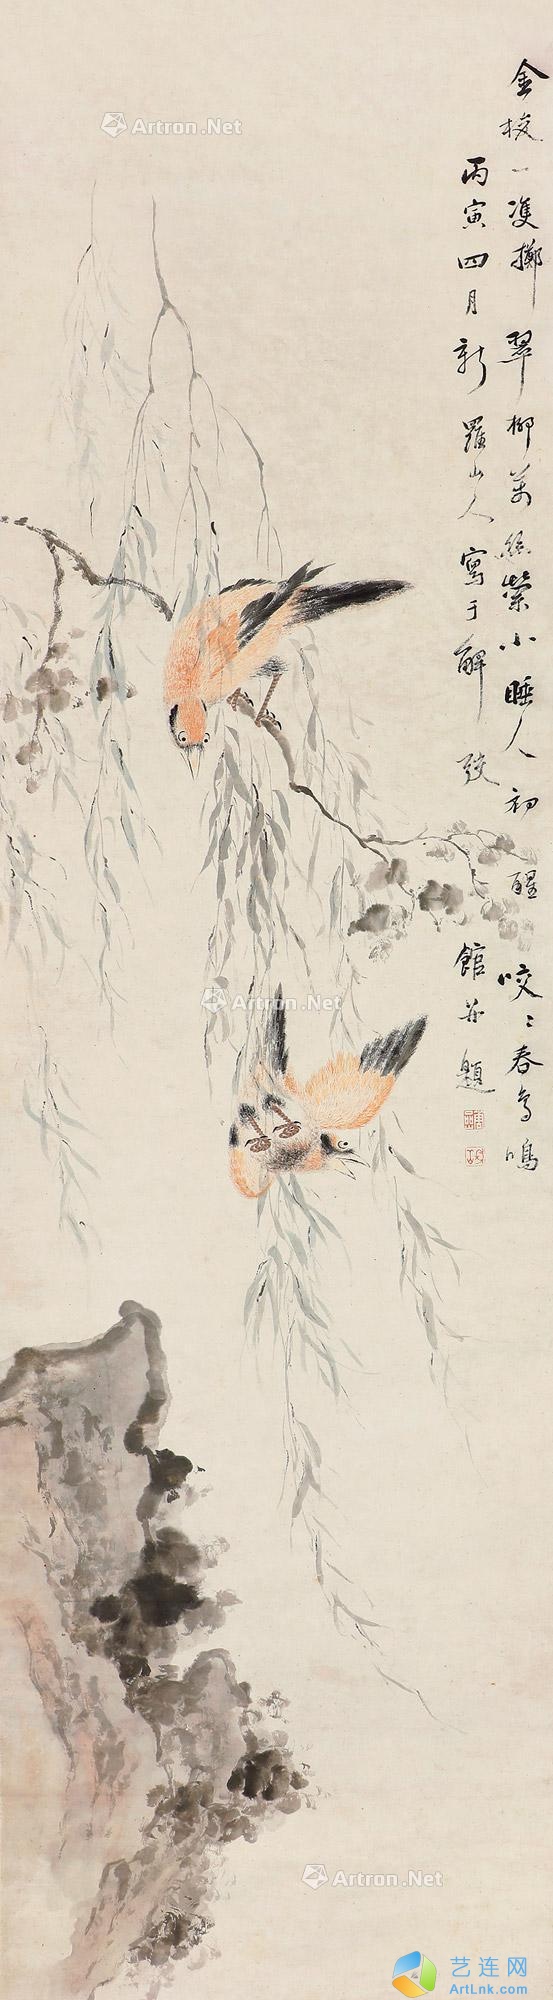 金梭一隻擲翠柳萬絲縈小睡人初醒咬咬春鳥鳴
丙寅四月新羅山人寫于解弢館并題
Artron.Net
Artron.Net
Artron.Net
艺连网
ArtLnk.com